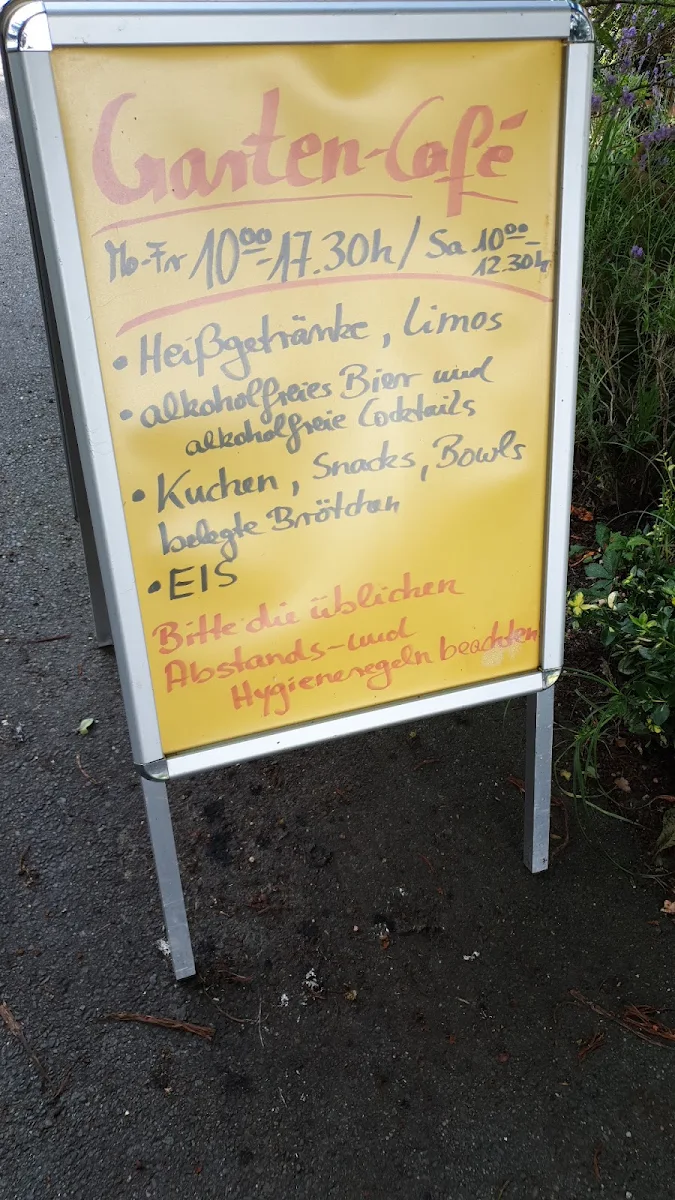 Garten-Café
Mo-Fr 10⁰⁰-17.30h / Sa 10⁰⁰-
12.30h
• Heißgetränke, Limos
• alkoholfreies Bier und
alkoholfreie Cocktails
• Kuchen, Snacks, Bowls
belegte Brötchen
• EIS
Bitte die üblichen
Abstands- und
Hygieneregeln beachten